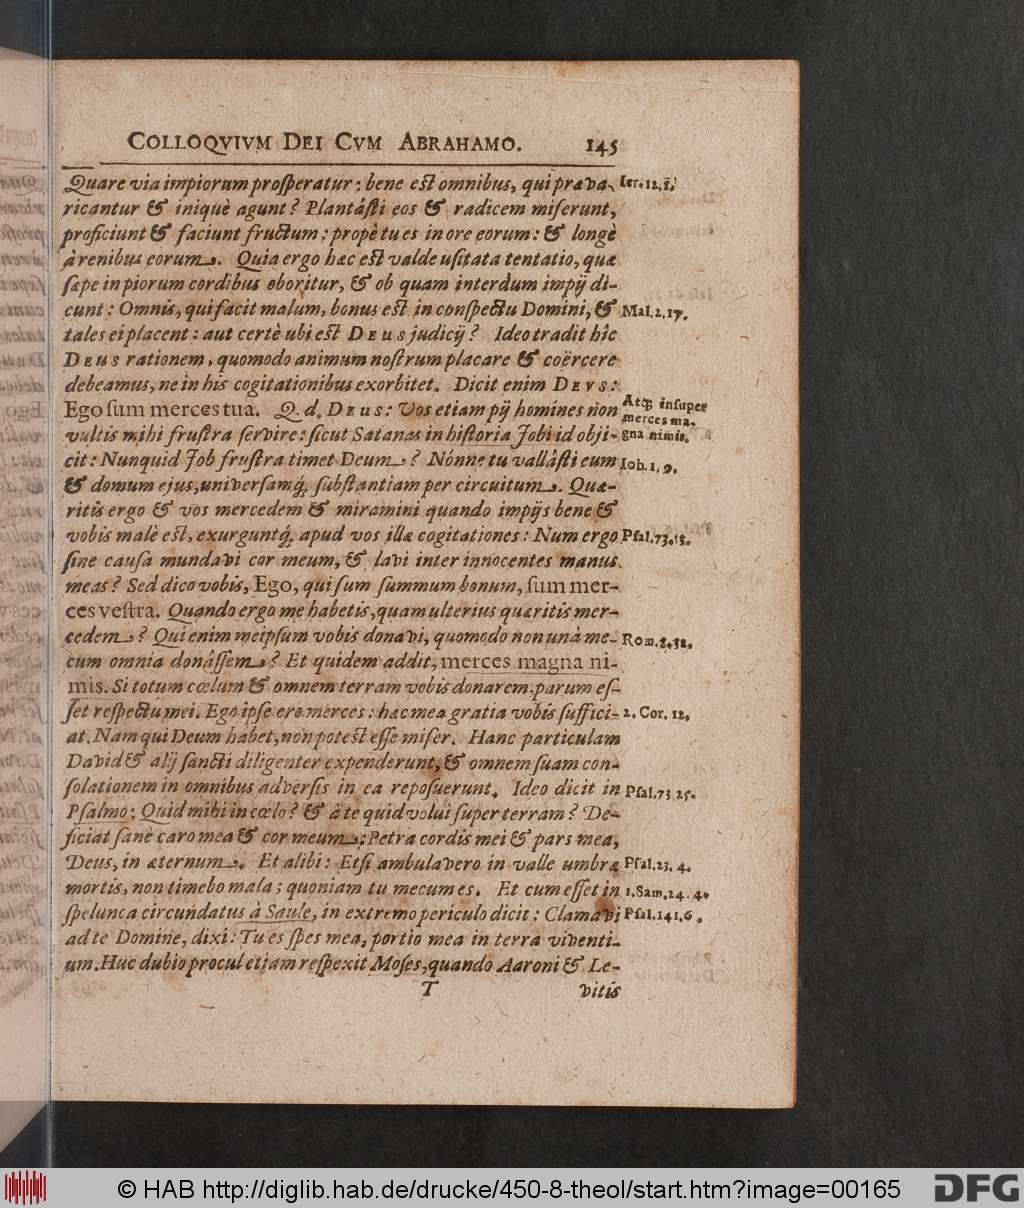 COLLOQVIVM DEI CVM ABRAHAMO. 145
Quare via impiorum prosperatur: bene est omnibus, qui præva- Ier. 12, 1.
ricantur & iniquè agunt? Plantásti eos & radicem miserunt,
proficiunt & faciunt fructum; propè tu es in ore eorum: & longè
à renibus eorum. Quia ergo hæc est valde usitata tentatio, quæ
sæpe in piorum cordibus oboritur, & ob quam interdum impij di-
cunt: Omnis, qui facit malum, bonus est in conspectu Domini, & Mal. 2, 17.
tales ei placent: aut certè ubi est DEUS judicij? Ideo tradit hîc
DEUS rationem, quomodo animum nostrum placare & coërcere
debeamus, ne in his cogitationibus exorbitet. Dicit enim DEVS:
Ego sum merces tua. Q. d. DEUS: Vos etiam pij homines non Atq; insuper merces ma-
vultis mihi frustra servire: sicut Satanas in historia Jobi id obji- gna nimis.
cit: Nunquid Job frustra timet Deum? Nónne tu vallâsti eum Ioh. 1, 9.
& domum ejus, universamq́; substantiam per circuitum. Quæ-
ritis ergo & vos mercedem & miramini quando impijs bene &
vobis malè est, exurguntq́; apud vos illæ cogitationes: Num ergo Psal. 73. 13.
sine causa mundavi cor meum, & lavi inter innocentes manus
meas? Sed dico vobis, Ego, qui sum summum bonum, sum mer-
ces vestra. Quando ergo me habetis, quam ulterius quæritis mer-
cedem? Qui enim meipsum vobis donavi, quomodo non unà me- Rom. 8. 32.
cum omnia donâssem? Et quidem addit, merces magna ni-
mis. Si totum cœlum & omnem terram vobis donarem: parum es-
set respectu mei. Ego ipse ero merces: hæc mea gratia vobis suffici- 2. Cor. 12.
at. Nam qui Deum habet, non potest esse miser. Hanc particulam
David & alij sancti diligenter expenderunt, & omnem suam con-
solationem in omnibus adversis in ea reposuerunt. Ideo dicit in Psal. 73 25.
Psalmo: Quid mihi in cœlo? & à te quid volui super terram? De-
ficiat sanè caro mea & cor meum; Petra cordis mei & pars mea,
Deus, in æternum. Et alibi: Etsi ambulavero in valle umbræ Psal. 23. 4.
mortis, non timebo mala; quoniam tu mecum es. Et cum esset in 1. Sam. 24. 4.
spelunca circundatus à Saule, in extremo periculo dicit: Clamavi Psal. 141, 6.
ad te Domine, dixi: Tu es spes mea, portio mea in terra viventi-
um. Huc dubio procul etiam respexit Moses, quando Aaroni & Le-
T vitis
© HAB http://diglib.hab.de/drucke/450-8-theol/start.htm?image=00165
DFG